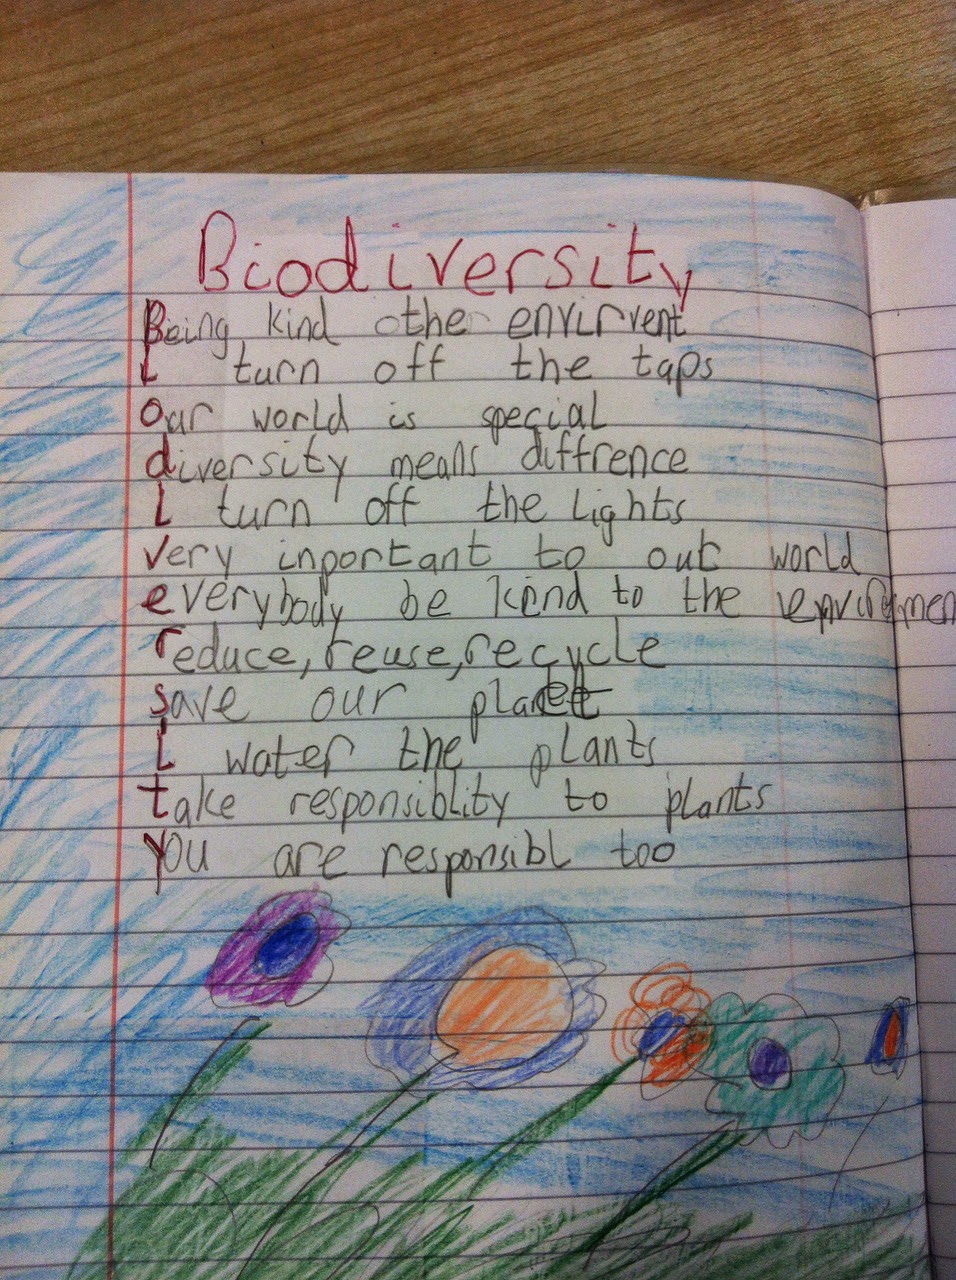 Biodiversity
Being kind othe envirvent
I turn off the taps
Our world is special
diversity means diffrence
I turn off the Lights
very inportant to out world
everybody be kind to the
reduce, reuse, recycle
save our planet
I water the plants
take responsiblity to plants
You are responsibl too